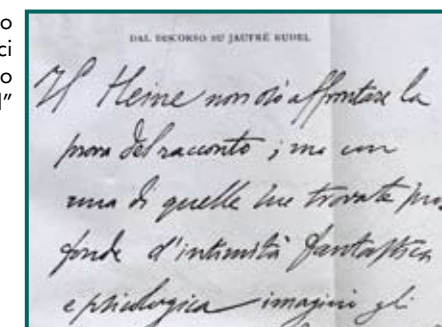 o
ci
o
l”
DAL DISCORSO SU JAUFRÉ RUDEL
L' Heine non osò affrontare la
prova del racconto; ma con
una di quelle sue trovate pro
fonde d'intimità fantastica
e psicologica imaginò gli